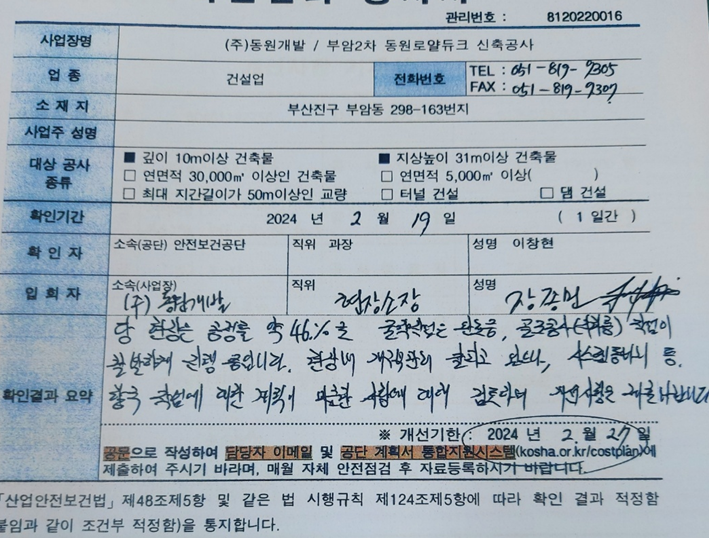 관리번호 : 8120220016
사업장명 (주)동원개발 / 부암2차 동원로얄듀크 신축공사
업 종 건설업 전화번호 TEL : 051-819-9305
FAX : 051-819-9307
소 재 지 부산진구 부암동 298-163번지
사업주 성명
대상 공사 종류 ■ 깊이 10m이상 건축물 ■ 지상높이 31m이상 건축물
□ 연면적 30,000㎡ 이상인 건축물 □ 연면적 5,000㎡ 이상( )
□ 최대 지간길이가 50m이상인 교량 □ 터널 건설 □ 댐 건설
확인기간 2024 년 2 월 19 일 ( 1 일간 )
확 인 자 소속(공단) 안전보건공단 직위 과장 성명 이창현
입 회 자 소속(사업장) (주)동원개발 직위 현장소장 성명 장종민
확인결과 요약
당 현장은 공정률 약 46.%로 완료,
진행 중입니다. 현장내 등.
향후 작업에 대한 계획이 미흡한 사항에 대해
※ 개선기한 : 2024 년 2 월 27 일
공문으로 작성하여 담당자 이메일 및 공단 계획서 통합지원시스템(kosha.or.kr/costplan)에
제출하여 주시기 바라며, 매월 자체 안전점검 후 자료등록하시기 바랍니다.
「산업안전보건법」제48조제5항 및 같은 법 시행규칙 제124조제5항에 따라 확인 결과 적정함
붙임과 같이 조건부 적정함)을 통지합니다.